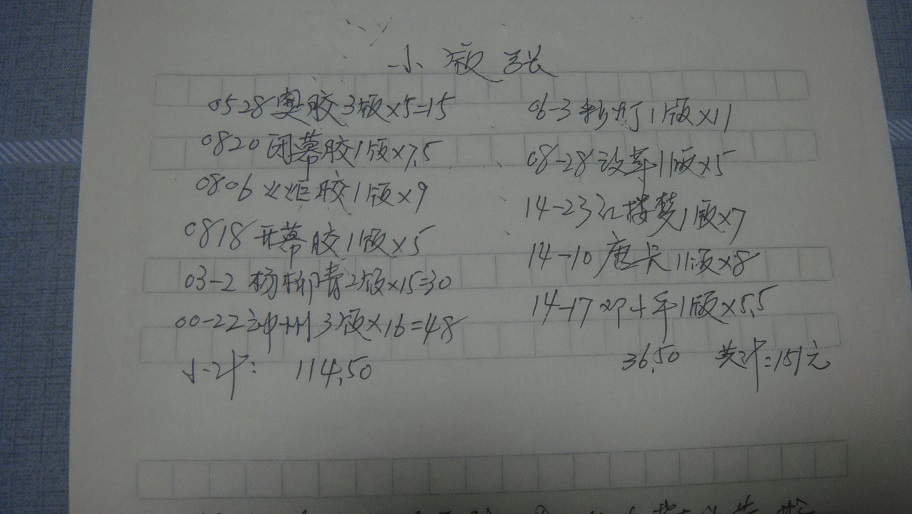 小版张
0528奥胶3版×5=15
0820闭幕胶1版×7.5
0806火炬胶1版×9
0818开幕胶1版×5
03-2 杨柳青2版×15=30
00-22神州3版×16=48
小计: 114.50
06-3彩灯1版×11
08-28改革1版×5
14-23红楼梦1版×7
14-10唐卡1版×8
14-17邓小平1版×5.5
36.50 共计=151元